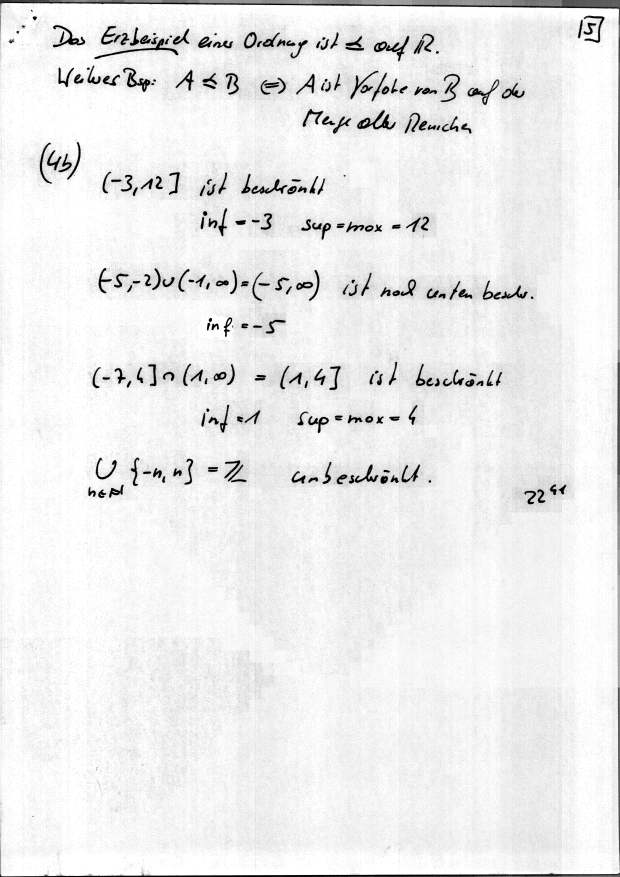 5
Das Erzbeispiel einer Ordnung ist ≤ auf ℝ.
Weitres Bsp: A ≤ B ⇔ A ist Vorfahre von B auf der
Menge aller Menschen
(4b)
(-3,12] ist beschränkt
inf = -3 sup = max = 12
(-5,-2)∪(-1,∞) = (-5,∞) ist nach unten beschr.
inf = -5
(-7,4]∩(1,∞) = (1,4] ist beschränkt
inf = 1 sup = max = 4
⋃ {-n, n} = ℤ unbeschränkt.
n∈ℕ
22⁴¹